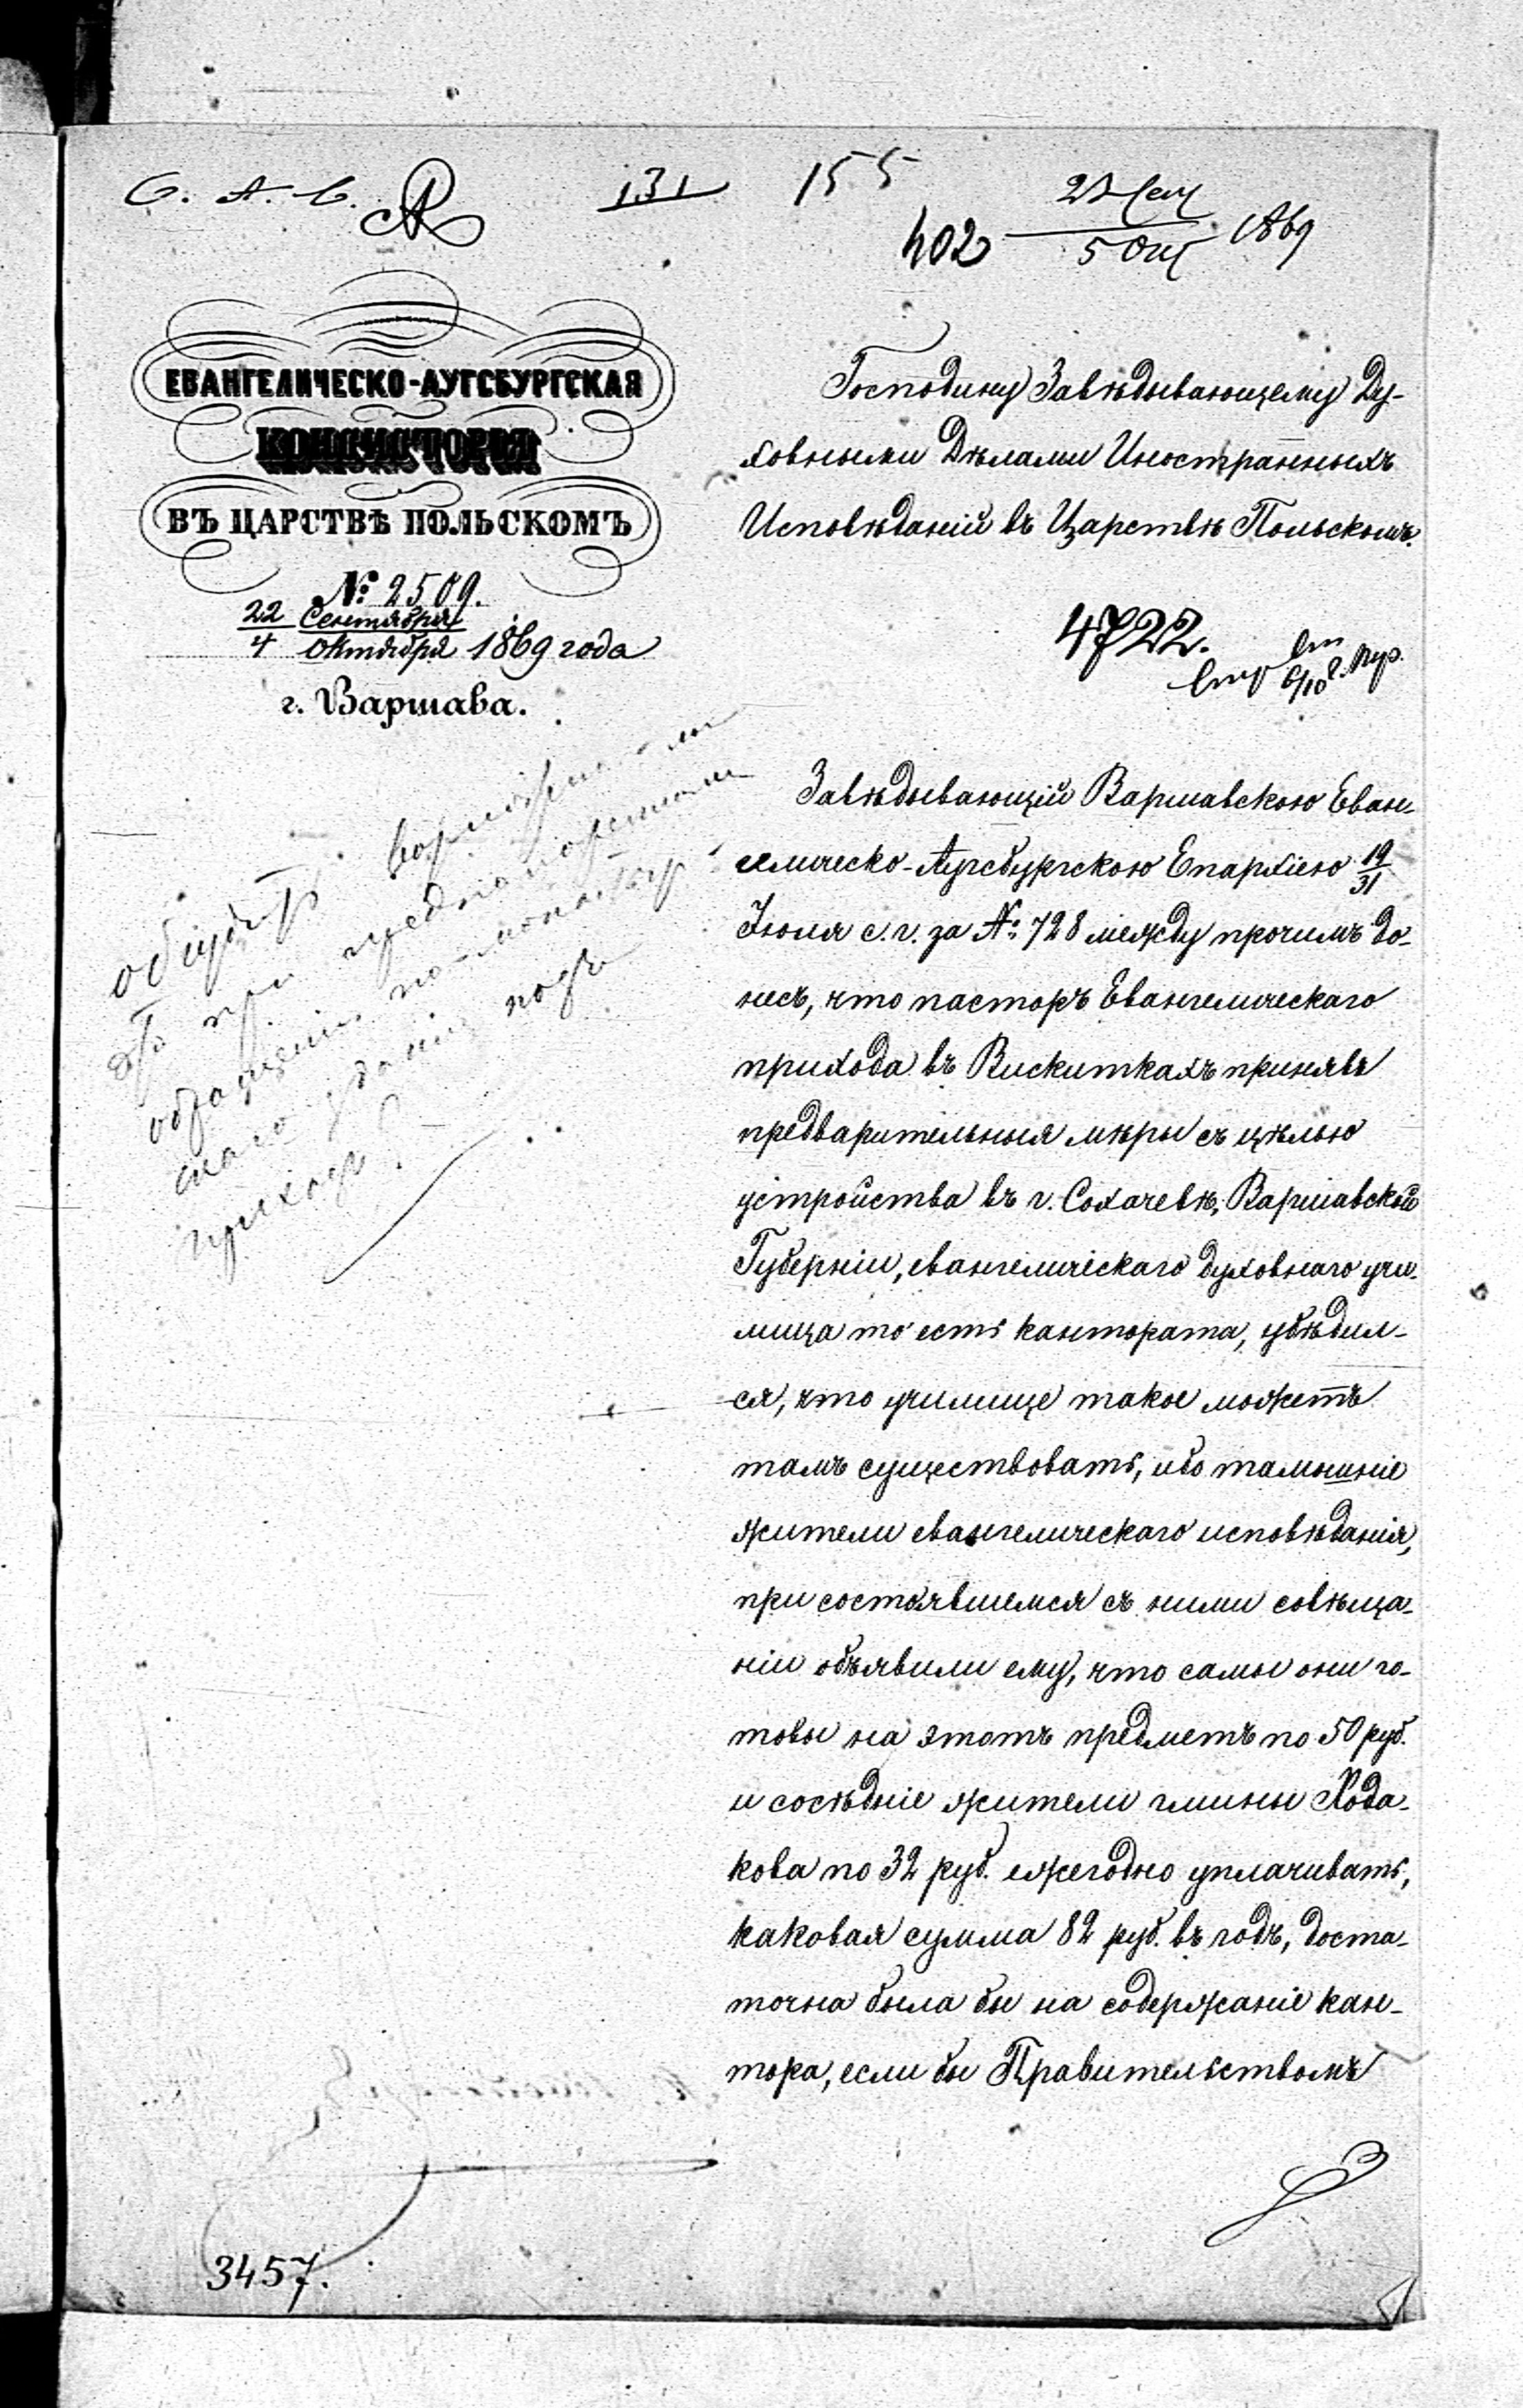 131
155
402 23 Сен / 5 Окт 1869
ЕВАНГЕЛИЧЕСКО-АУГСБУРГСКАЯ
КОНСИСТОРІЯ
ВЪ ЦАРСТВѢ ПОЛЬСКОМЪ
№ 2509.
22 Сентября / 4 Октября 1869 года
г. Варшава.
Господину Завѣдывающему Ду-
ховными Дѣлами Иностранныхъ
Исповѣданій въ Царствѣ Польскомъ.
4722.
Завѣдывающій Варшавскою Еван-
гелическо-Аугсбургскою Епархіею 19/31
Іюля с. г. за № 728 между прочимъ до-
несъ, что пасторъ Евангелическаго
прихода въ Вискиткахъ принявъ
предварительныя мѣры съ цѣлью
устройства въ г. Сохачевѣ, Варшавской
Губерніи, евангелическаго духовнаго учи-
лища то есть кантората, убѣдил-
ся, что училище такое можетъ
тамъ существовать, ибо тамошніе
жители евангелическаго исповѣданія,
при состоявшемся съ ними совѣща-
ніи объявили ему, что самы они го-
товы на этотъ предметъ по 50 руб.
и сосѣдніе жители гмины Хода-
кова по 32 руб. ежегодно уплачивать,
каковая сумма 82 руб. въ годъ, доста-
точна была бы на содержаніе кан-
тора, если бы Правительствомъ
при
прихода
3457.